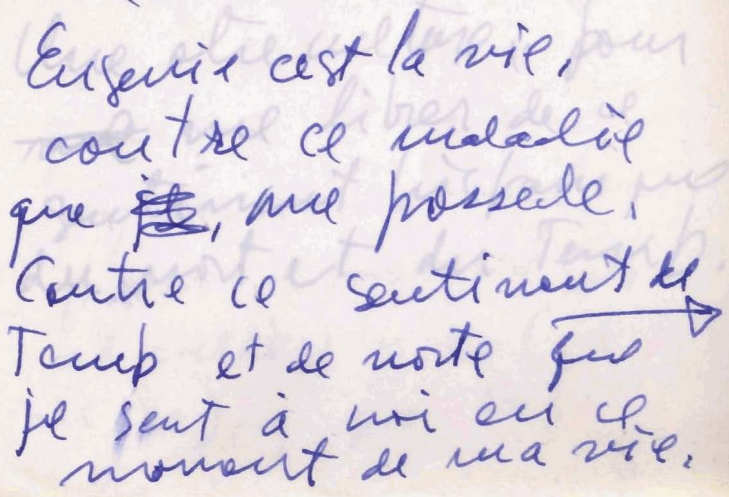 Eugenie cest la vie,
contre ce maladie
que, me possede.
Contre ce sentiment de
Temp et de morte que
je sent à moi en ce
moment de ma vie.